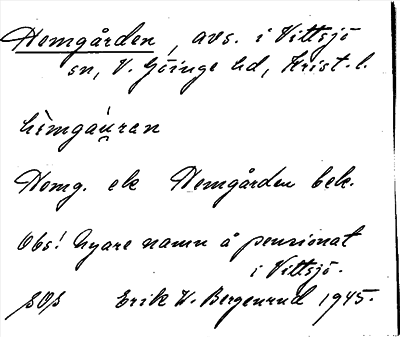 Hemgården, avs. i Vittsjö
sn, V. Göinge hd, Krist. l.
hèmgáu̯ran
Hemg. ek Hemgården bek.
Obs! Nyare namn å pensionat
i Vittsjö.
Erik W. Bergenrud 1945.